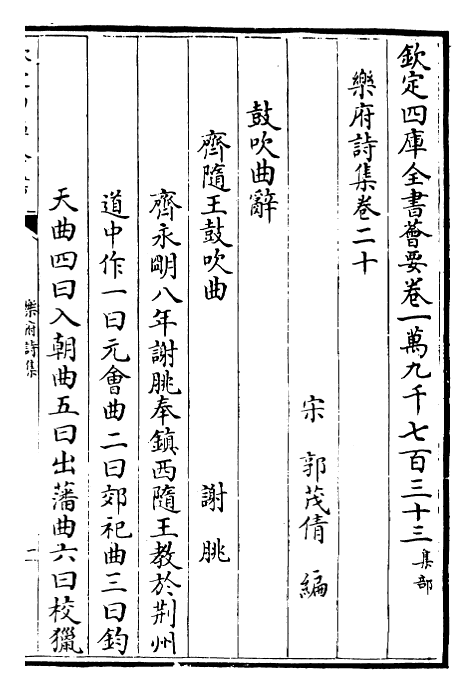 欽定四庫全書薈要卷一萬九千七百三十三集部
樂府詩集卷二十
宋郭茂倩編
鼓吹曲辭
齊隨王鼓吹曲 謝朓
齊永明八年謝朓奉鎮西隨王教於荆州
道中作一曰元會曲二曰郊祀曲三曰鈞
天曲四曰入朝曲五曰出藩曲六曰校獵
樂府詩集